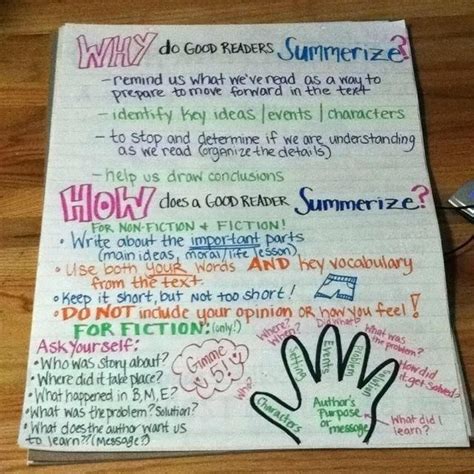 WHY do GOOD READERS Summerize?
- remind us what we've read as a way to
prepare to move forward in the text
- identify key ideas / events / characters
- to stop and determine if we are understanding
as we read (organize the details)
- help us draw conclusions
HOW does a GOOD READER Summerize?
FOR NON-FICTION + FICTION!
• Write about the important parts
(main ideas, moral/life lesson)
• Use both YOUR words AND key vocabulary
from the text.
• Keep it short, but not too short!
• DO NOT include your opinion or how you feel!
FOR FICTION: (only!)
Ask Yourself:
• Who was story about?
• Where did it take place?
• What happened in B, M, E?
• What was the problem? Solution?
• What does the author want us
to learn?? (Message?)
Gimme
5!
Who?
Characters
Where?
When?
Setting
Did what?
Events
What was
the problem?
Problem
How did
it get solved?
Solution
Author's
Purpose
or
message
What did I
learn?